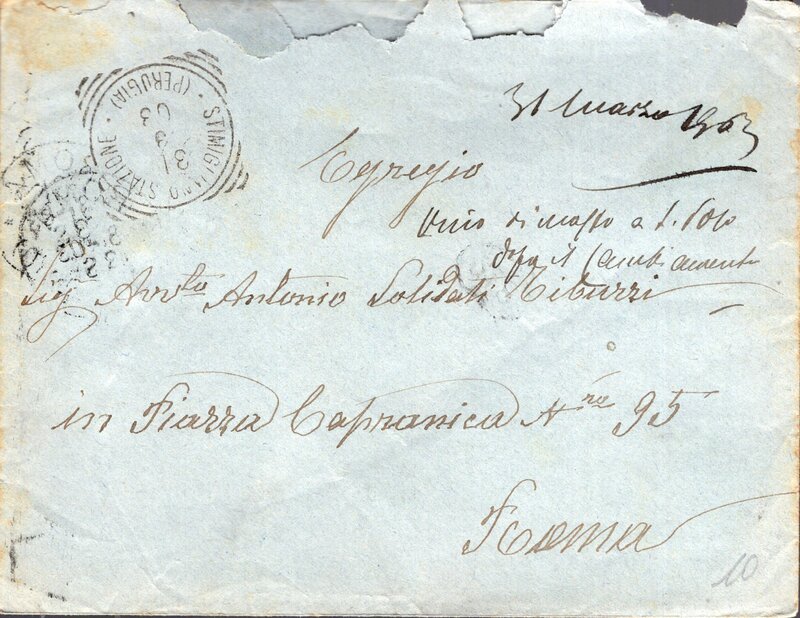 STIMIGLIANO STAZIONE (PERUGIA)
31
3
03
31 Marzo 1903
Egregio
Vino rimasto a S. Polo
dopo il Cambiamento
Sig Avv.to Antonio Solidati Tiburzi
in Piazza Capranica N.ro 95
Roma
10